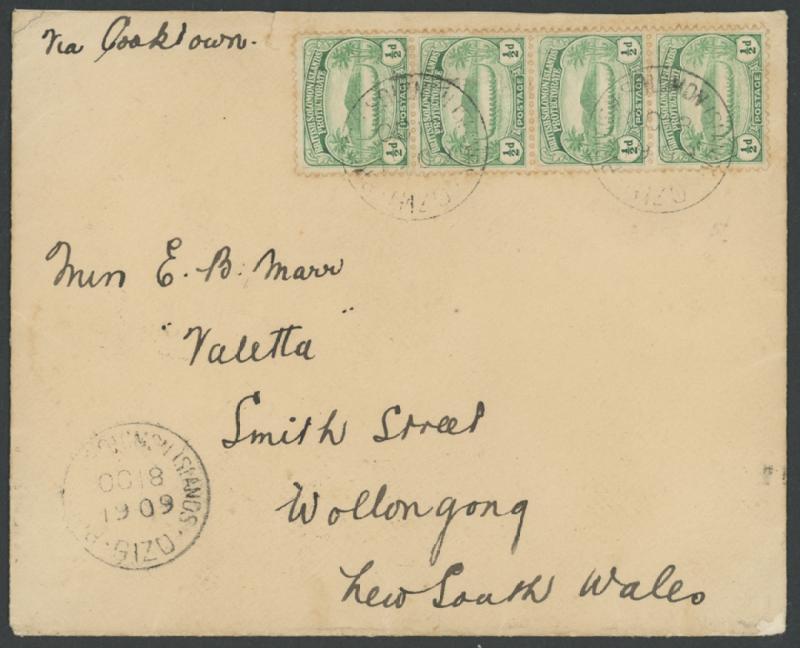 Via Cooktown.
BRITISH SOLOMON ISLANDS
PROTECTORATE
POSTAGE
½d ½d
BRITISH SOLOMON ISLANDS
PROTECTORATE
POSTAGE
½d ½d
BRITISH SOLOMON ISLANDS
PROTECTORATE
POSTAGE
½d ½d
BRITISH SOLOMON ISLANDS
PROTECTORATE
POSTAGE
½d ½d
Miss E. B. Marr
"Valetta"
Smith Street
Wollongong
New South Wales
SOLOMON ISLANDS
OC 18
1909
GIZO